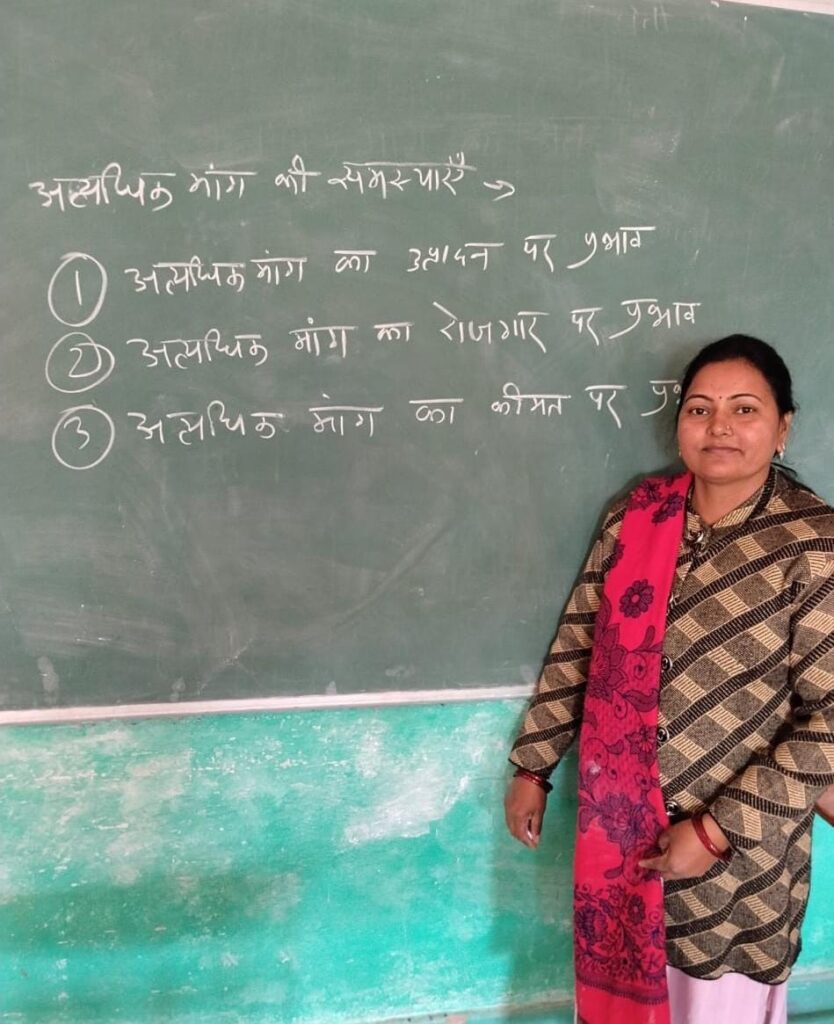 अत्यधिक मांग की समस्याएँ →
① अत्यधिक मांग का उत्पादन पर प्रभाव
② अत्यधिक मांग का रोजगार पर प्रभाव
③ अत्यधिक मांग का कीमत पर